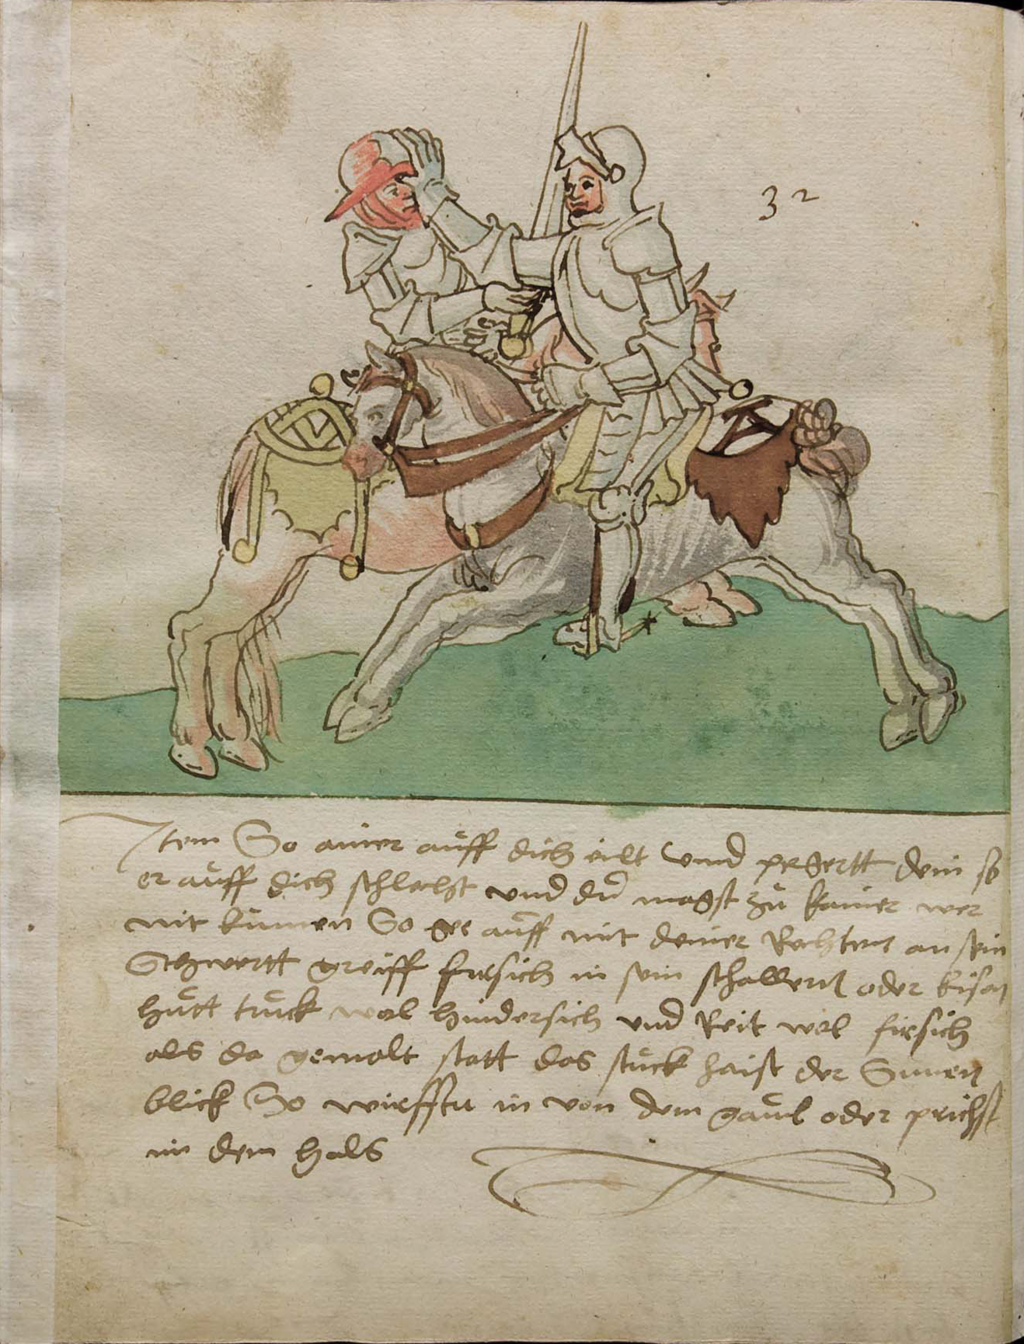 32
Item So ainer auff dich eilt vnnd pegertt dein so
er auff dich schlecht vnd du magst zu kainer wer
nit kumen So ge auff mit deiner Rechten an sein
Schwertt greiff fursich in sein schallern oder eisen
hutt truck wol hindersich vnd Reit wol fursich
als da gemalt statt das stuck haist der Sunen
blick So wirffstu in von dem gaul oder prichst
im den hals